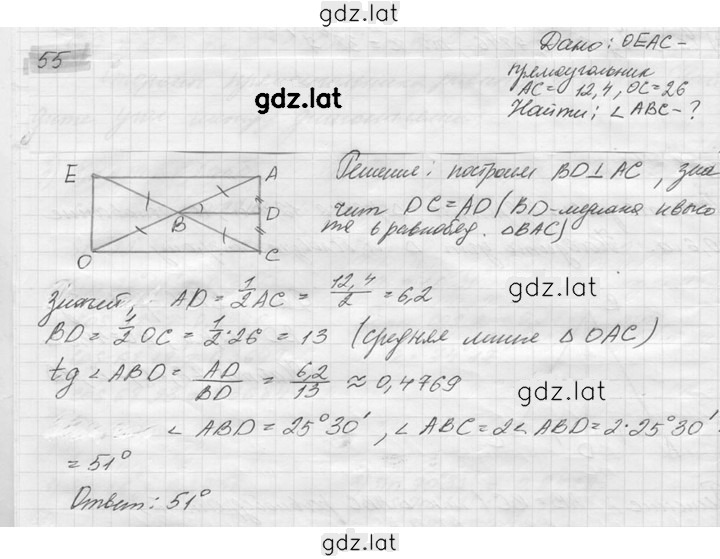 gdz.lat
55
gdz.lat
Дано: OEAC -
прямоугольник
AC = 12,4, OC = 26
Найти: ∠ABC - ?
E
A
B
D
O
C
Решение: построим BD⊥AC, зна
чит DC = AD (BD - медиана и высо
та в равнобед. △BAC)
Значит, AD = 1/2 AC = 12,4/2 = 6,2
BD = 1/2 OC = 1/2 · 26 = 13 (средняя линия △OAC)
tg ∠ABD = AD/BD = 6,2/13 ≈ 0,4769
gdz.lat
∠ABD = 25°30', ∠ABC = 2∠ABD = 2·25°30' =
= 51°
Ответ: 51°
gdz.lat